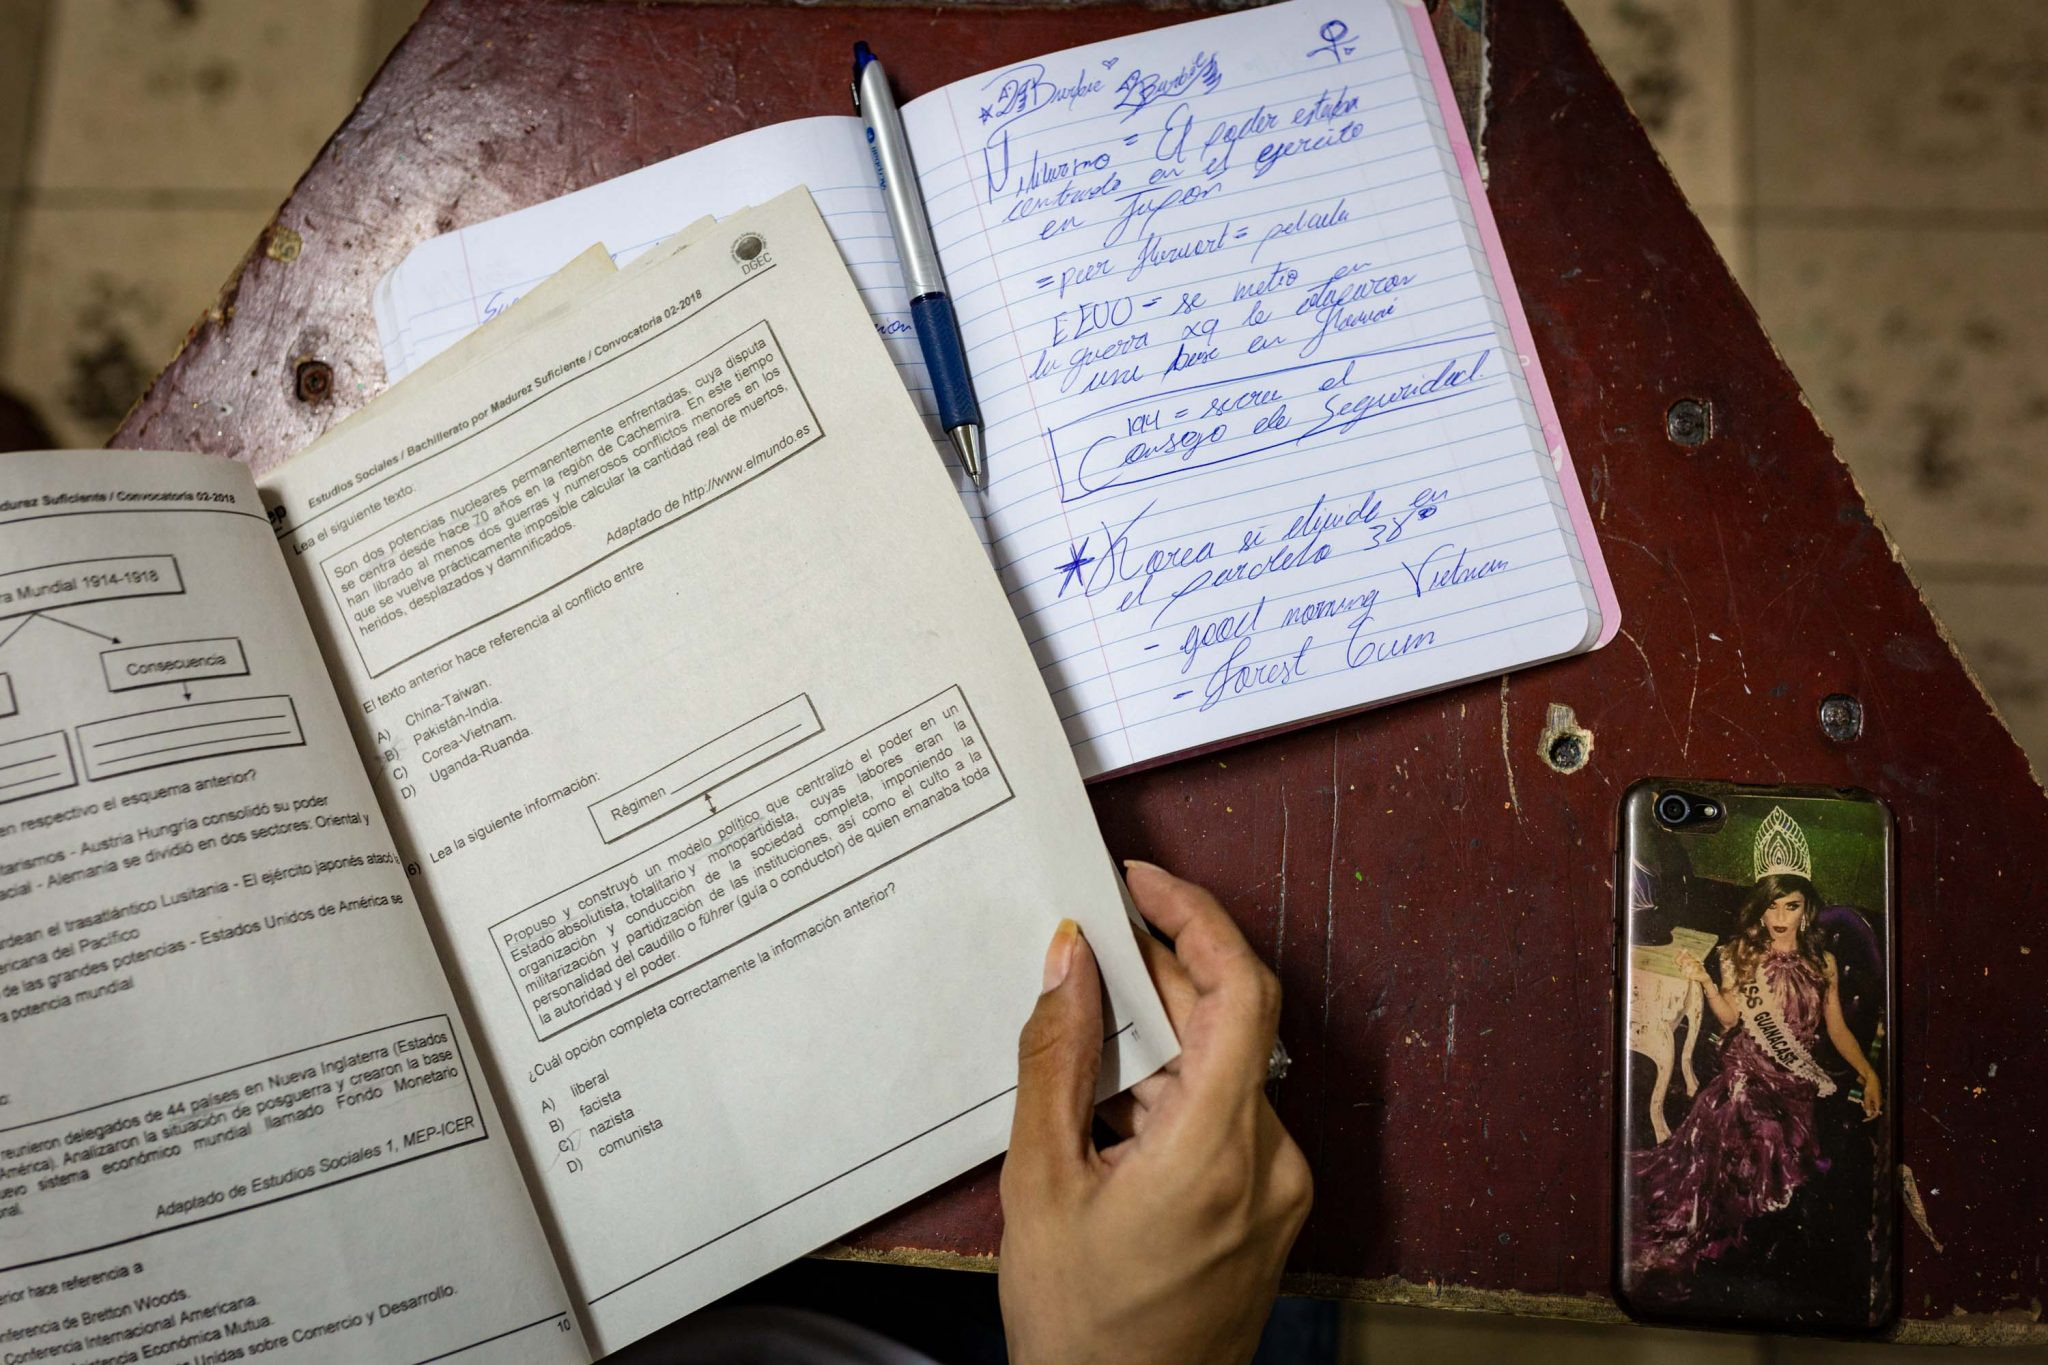 durez Suficiente / Convocatoria 02-2018
ra Mundial 1914-1918
Consecuencia
en respectivo el esquema anterior?
tarismos - Austria Hungría consolidó su poder
acial - Alemania se dividió en dos sectores: Oriental y
rdean el trasatlántico Lusitania - El ejército japonés atacó
ericana del Pacífico
de las grandes potencias - Estados Unidos de América se
a potencia mundial
reunieron delegados de 44 países en Nueva Inglaterra (Estados
América). Analizaron la situación de posguerra y crearon la base
uevo sistema económico mundial llamado Fondo Monetario
onal.
Adaptado de Estudios Sociales 1, MEP-ICER
erior hace referencia a
nferencia de Bretton Woods.
Conferencia Internacional Americana.
istencia Económica Mutua.
Unidas sobre Comercio y Desarrollo.
10
DGEC
Estudios Sociales / Bachillerato por Madurez Suficiente / Convocatoria 02-2018
Lea el siguiente texto:
Son dos potencias nucleares permanentemente enfrentadas, cuya disputa
se centra desde hace 70 años en la región de Cachemira. En este tiempo
han librado al menos dos guerras y numerosos conflictos menores en los
que se vuelve prácticamente imposible calcular la cantidad real de muertos,
heridos, desplazados y damnificados.
Adaptado de http://www.elmundo.es
El texto anterior hace referencia al conflicto entre
A) China-Taiwan.
B) Pakistán-India.
C) Corea-Vietnam.
D) Uganda-Ruanda.
6) Lea la siguiente información:
Régimen
Propuso y construyó un modelo político que centralizó el poder en un
Estado absolutista, totalitario y monopartidista, cuyas labores eran la
organización y conducción de la sociedad completa, imponiendo la
militarización y partidización de las instituciones, así como el culto a la
personalidad del caudillo o führer (guía o conductor) de quien emanaba toda
la autoridad y el poder.
¿Cuál opción completa correctamente la información anterior?
A) liberal
B) facista
C) nazista
D) comunista
11
Burbie
= El poder estaba
centrado en el ejercito
en Japon
= película
EEUU = se metio en
la guerra xq le atacaron
una base en Hawai
= surge el
Consejo de Seguridad.
Korea si divide en
el paralelo 38°
- good morning Vietnam
- Forest Gum
MISS GUANACASTE